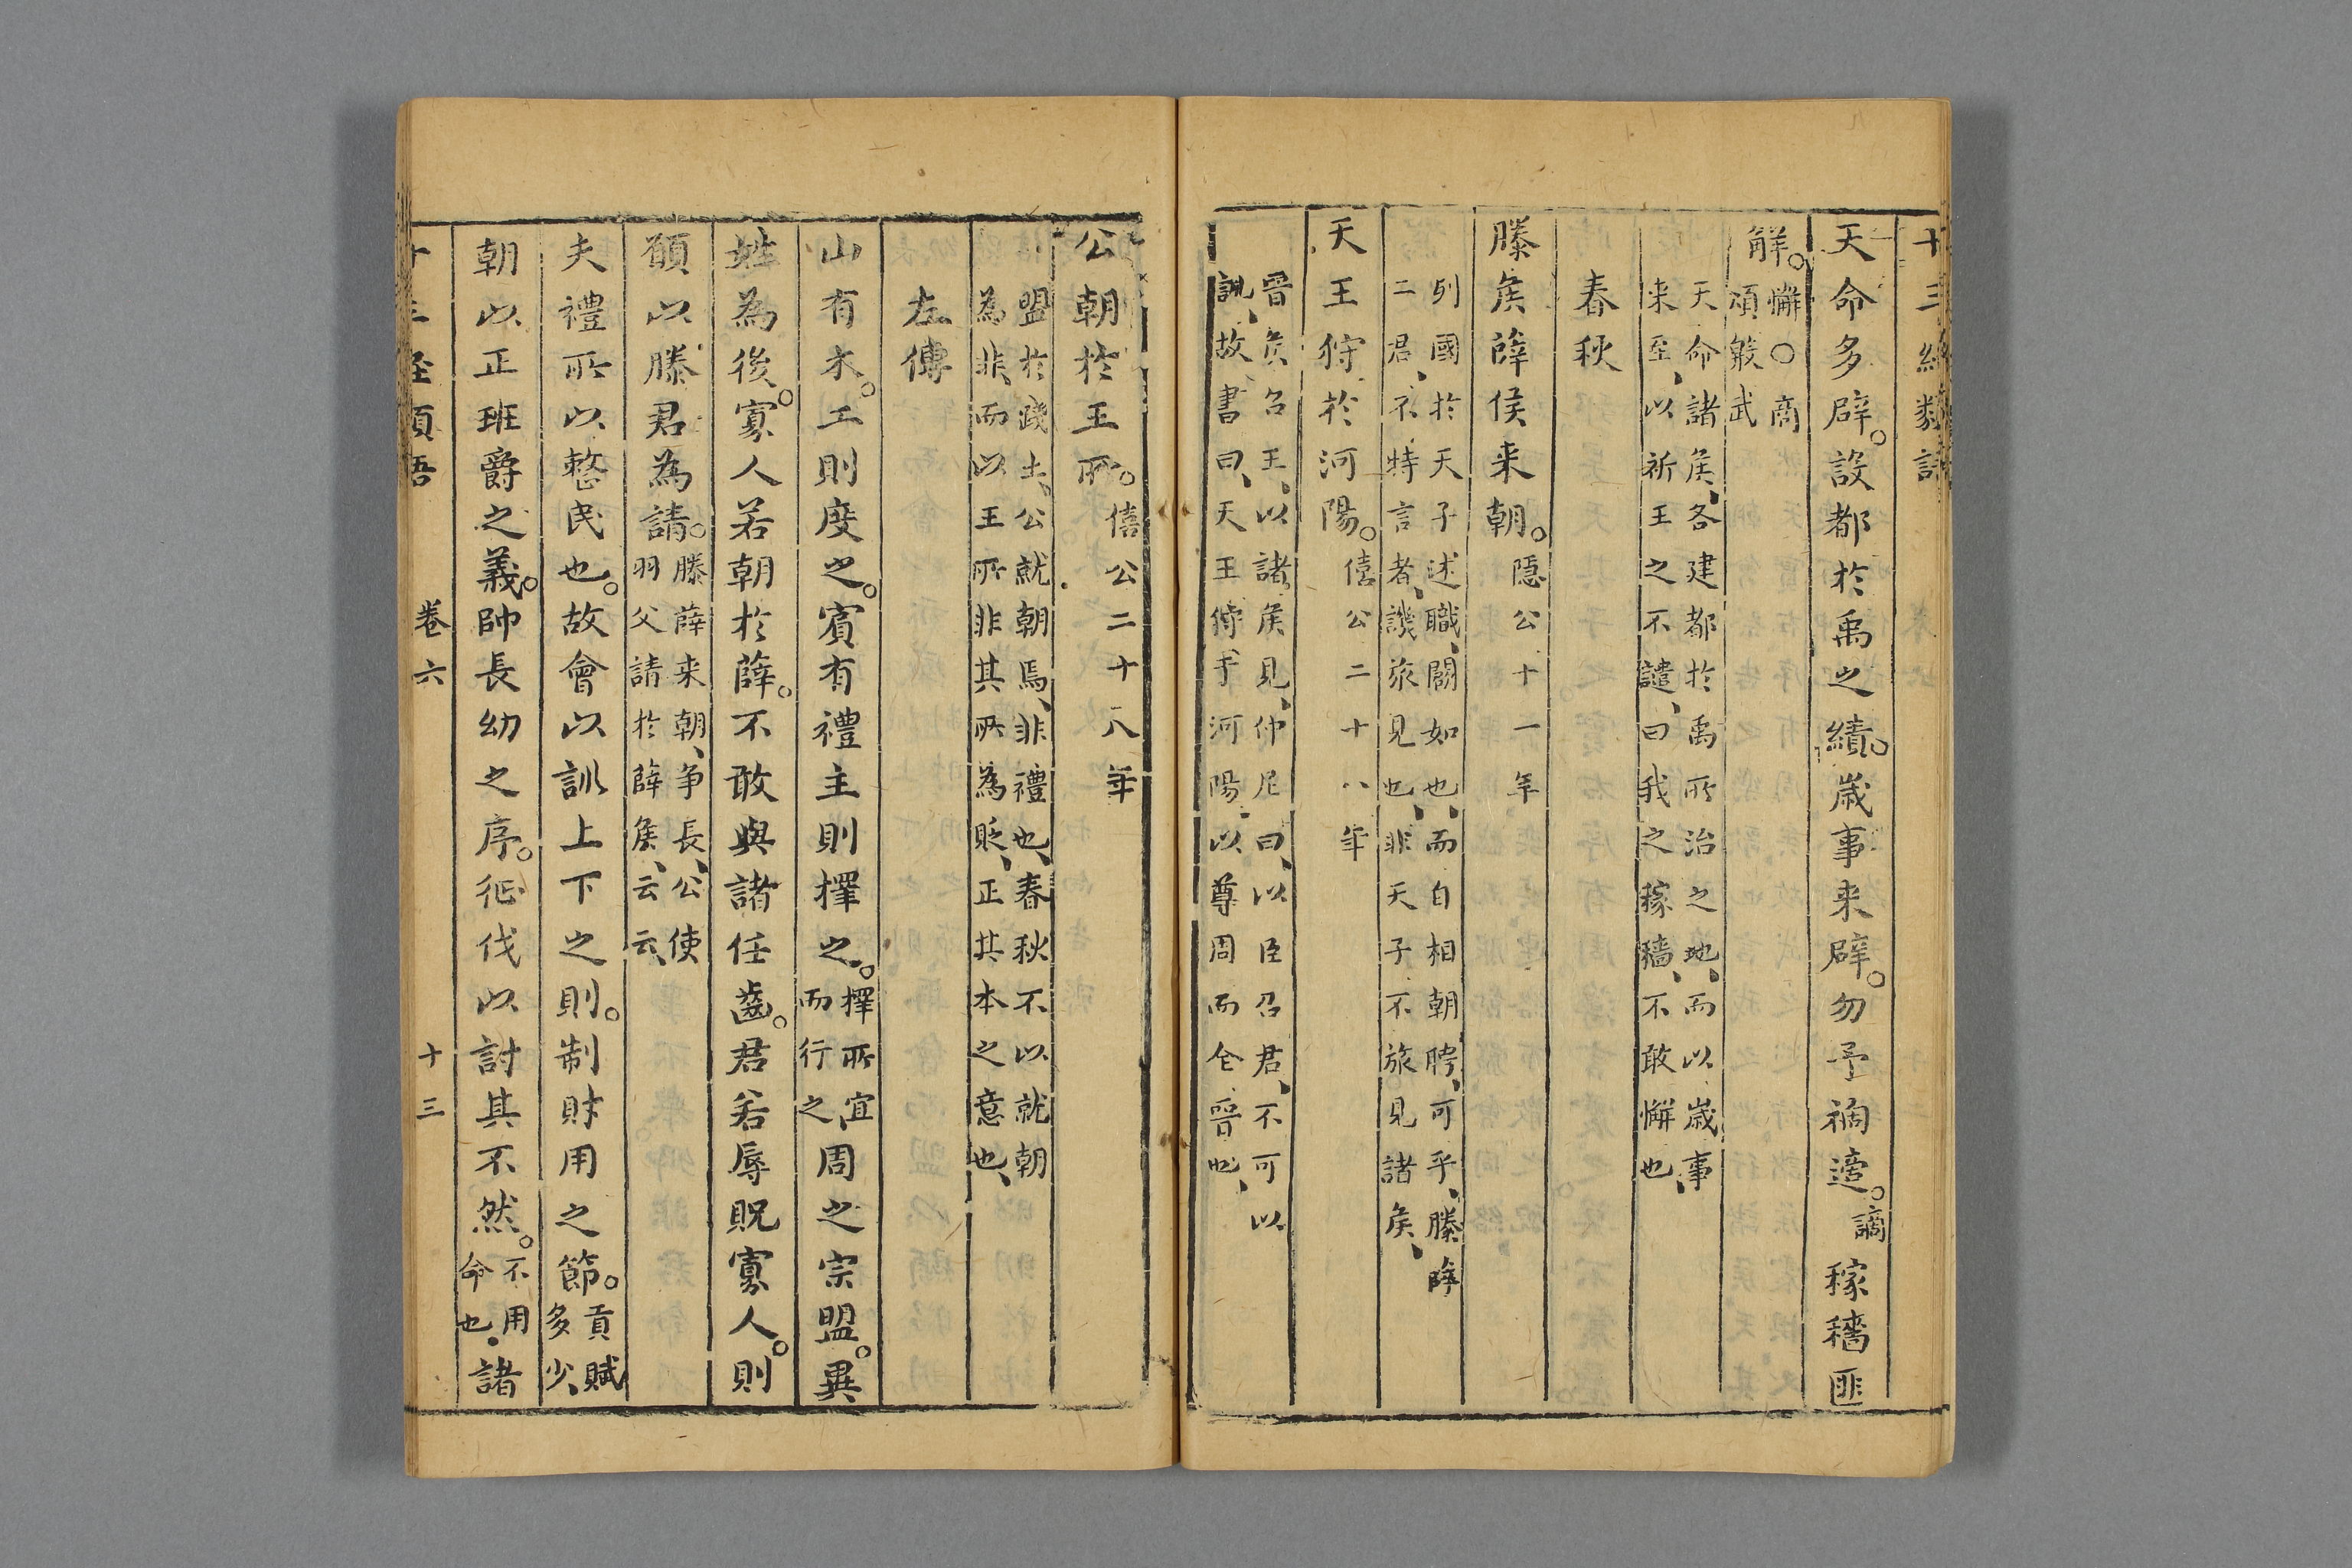 十三經類語
天命多辟。設都於禹之績。歲事来辟。勿予禍適。謫稼穡匪
解。懈〇商
頌殷武
天命諸矦、各建都於禹所治之地、而以歲事、
来至、以祈王之不譴、曰我之稼穡、不敢懈也、
春秋
滕矦薛侯来朝。隱公十一年
列國於天子述職、閼如也、而自相朝聘、可乎、滕薛
二君、不特言者、譏旅見也、非天子不旅見諸矦、
天王狩於河陽。僖公二十八年
晉矦召王、以諸矦見、仲尼曰、以臣召君、不可以
訓、故書曰、天王狩于河陽、以尊周而全晉也、
公朝於王所。僖公二十八年
盟於踐土、公就朝焉、非禮也、春秋不以就朝
為非、而以王所非其所為貶、正其本之意也、
左傳
山有木。工則度之。賓有禮主則擇之。擇所宜
而行之周之宗盟。異
姓為後。寡人若朝於薛。不敢與諸任齒。君若辱貺寡人。則
願以滕君為請。滕薛来朝、争長、公使
羽父請於薛矦、云云、
夫禮所以整民也。故會以訓上下之則。制財用之節。貢賦
多少、
朝以正班爵之義。帥長幼之序。征伐以討其不然。不用
命也、諸
十三經類語 卷六 十三